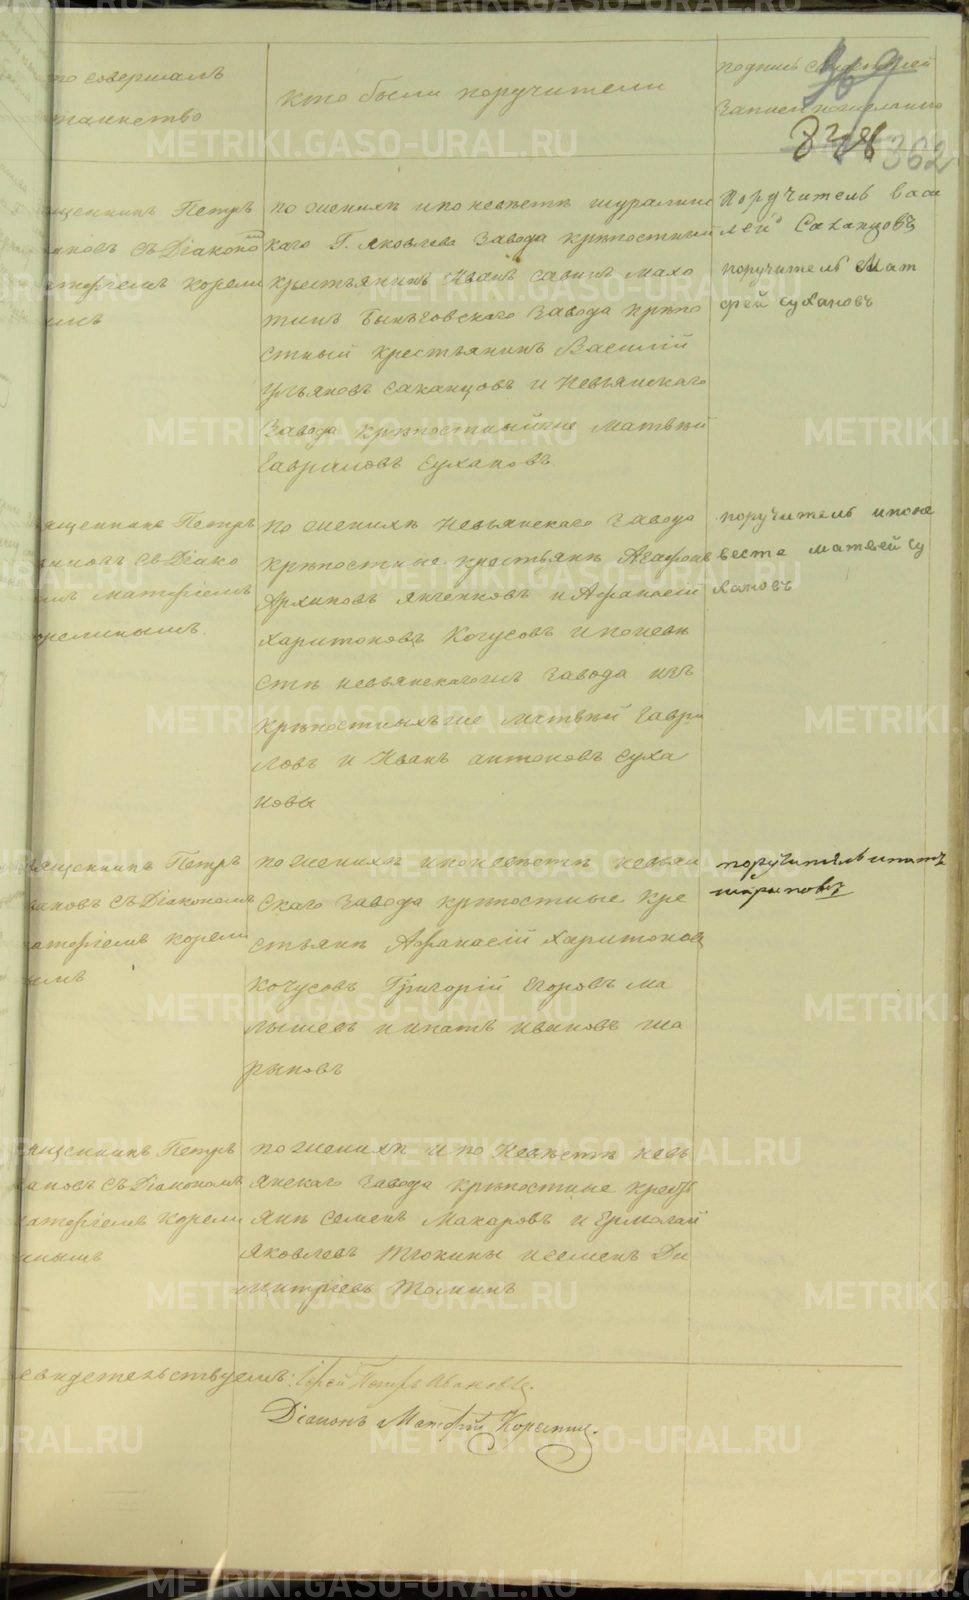 то совершалъ
таинство
кто были поручители
подпись свидѣтелей
записи по желанию
362
щенникъ Петръ
ановъ съ Діакono
атөіемъ Корели
ымъ
по женихѣ и по невѣстѣ шуралин
скаго Г. Яковлева завода крѣпостный
крестьянинъ Иванъ Савинъ Махо
тинъ Быньговскаго завода крѣпо
стный крестьянинъ Василій
Ульяновъ Саканцовъ и Невьянскаго
завода крѣпостный же Матвѣй
Гавриловъ Сухановъ
Поручитель Васи
лей Саканцовъ
поручитель Мат
фей Сухановъ
ященникъ Петръ
ановъ съ Діако
омъ Матөіемъ
орелинымъ.
по женихѣ Невьянскаго завода
крѣпостные крестьянѣ Агафонъ
Архиповъ Янченковъ и Афанасій
Харитоновъ Кочусовъ и по невѣ
стѣ невьянскаго же завода изъ
крѣпостныхъ же Матвѣй Гаври
ловъ и Иванъ Антоновъ Суха
новы
поручитель и по не
весте матвей Су
хановъ
вященникъ Петръ
вановъ съ Діакономъ
атөіемъ Корели
нымъ
по женихѣ и по невѣстѣ невьян
скаго завода крѣпостные кре
стьянѣ Афанасій Харитоновъ
Кочусовъ Григорій Егоровъ Ма
лышевъ и Ипатъ Ивановъ Ша
рыповъ
поручитель ипатъ
шарыповъ
ященникъ Петръ
вановъ съ Діакономъ
атөіемъ Корели
нымъ
по женихѣ и по Невѣстѣ Невь
янскаго завода крѣпостные крестъ
янѣ Семенъ Макаровъ и Ермолай
Яковлевъ Тюкины и Семенъ Ди
митріевъ Томинъ
свидетельствуемъ: Іерей Петръ Ивановъ.
Діаконъ Матөій Корелинъ.
METRIKI.GASO-URAL.RU